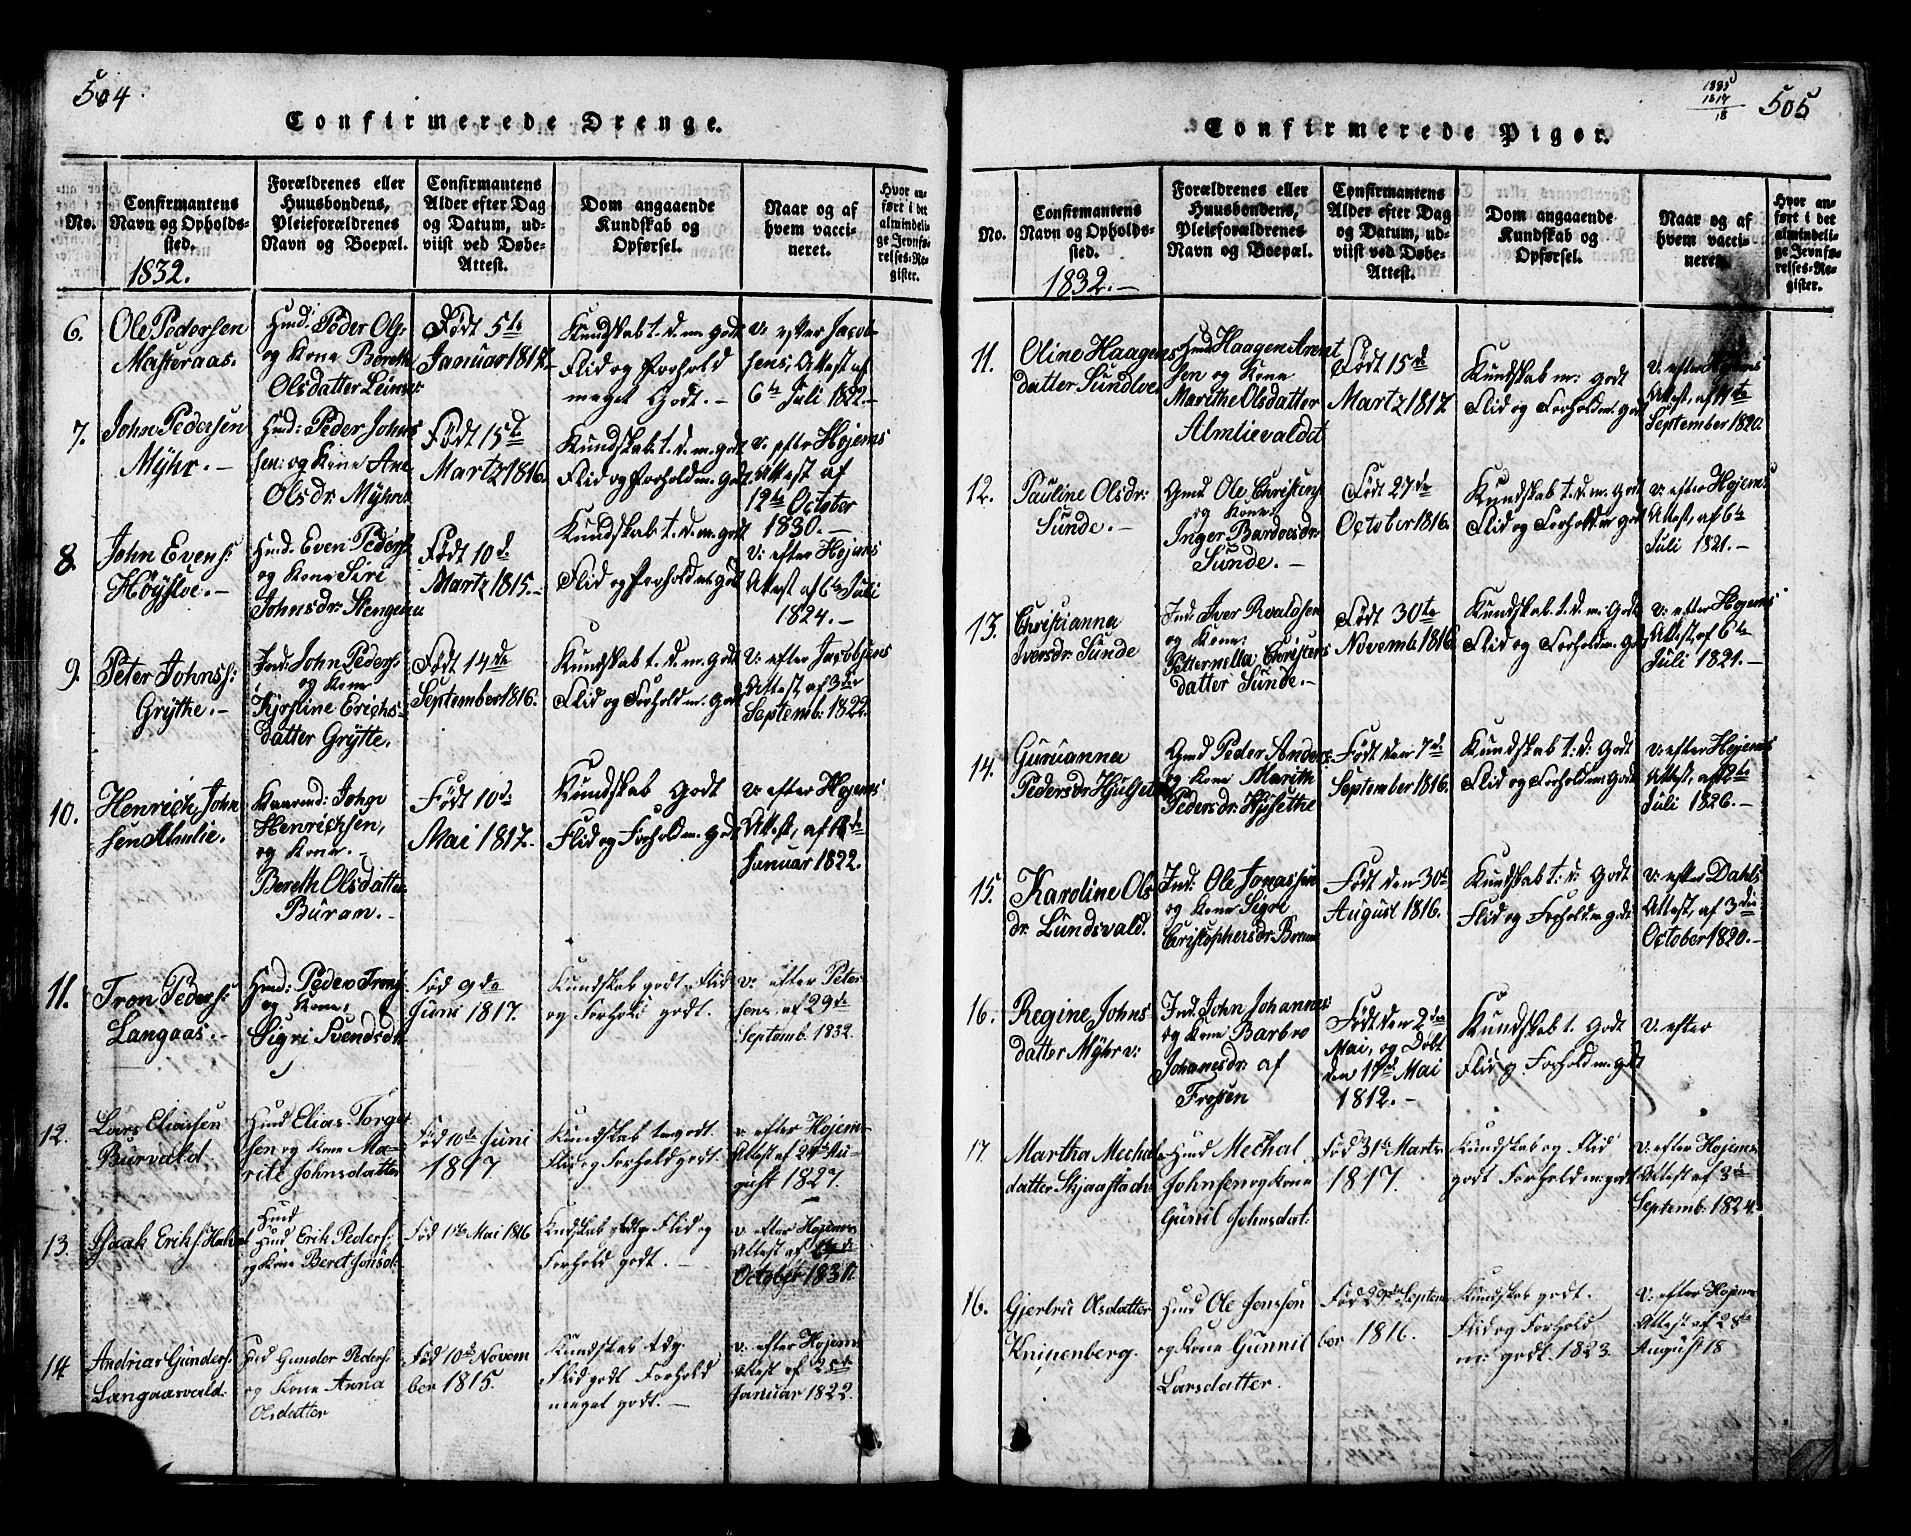 504
Confirmerede Drenge.
No.
Confirmantens
Navn og Opholds-
sted.
1832.
Forældrenes eller
Huusbondens,
Pleieforældrenes
Navn og Boepæl.
Confirmantens
Alder efter Dag
og Datum, ud-
viist ved Døbe-
Attest.
Dom angaaende
Kundskab og
Opførsel.
Naar og af
hvem vacci-
neret.
Hvor an-
ført i det
almindeli-
ge Jevnfø-
relses-Re-
gister.
6.
Ole Pedersen
Masteraas.
Hmd: Peder Ols:
og Kone Bereth
Olsdatter
Født 5te
Januar 1818
Kundskab t. d. m. godt
Flid og Forhold
meget Godt. -
V: efter Jacob-
sens, Attest af
6te Juli 1822. -
7.
John Pedersen
Mÿhr. -
Hmd: Peder Johns
sen: og Kone Ane
Olsdr Mÿhre
Født 15te
Martz 1816.
Kundskab t. d. m. godt
Flid og Forhold m. Godt.
V: efter Højems
Attest af
12te October
1830. -
8.
John Evens:
Høÿsloe. -
Hmd: Even Peders:
og Kone Siri
Johnsdr:
Født 10de
Martz 1815. -
Kundskab t. d. m. godt
Flid og Forhold m. godt
V: efter Højems
Attest af 6te Juli
1824. -
9.
Peter Johnss:
Grÿthe. -
Ind: John Peders:
og Kone
Kjrstine Erichs-
datter Grÿtte.
Født 14de
September 1816.
Kundskab t. d. m. godt
Flid og Forhold m. Godt
V: efter Jacobsens
Attest, af 3die
Septemb: 1822.
10.
Henrich John
sen Almlie.
John
Henrichsen,
og Kone. -
Bereth Olsdatter
Buran. -
Født 10de
Mai 1817.
Kundskab Godt
Flid og Forhold m. godt
V: efter Højems
Attest, af
Januar 1822.
11.
Tron Peders:
Langaas. -
Hmd: Peder Trons
og Kone,
Sigri Svendsdr
Fød 9de
Juni 1817.
Kundskab godt. Flid
og Forhold godt.
V: efter Peter-
sens. af 29de
Septemb. 1832.
12.
Lars Eliassen
Burvald
Hmd Elias Torget
sen og Kone Ma-
rite Johnsdatter
Fød 10de Juni
1817.
Kundskab godt.
Flid og Forhold godt.
v. efter Højems
Attest af 24de Au-
gust 1827.
13.
Isaak Eriks:
Hmd
Hmd Erik Peders:
og Kone Beret Jonsd:
Fød 1te Mai 1816
Kundskab tdg Flid og
Forhold godt. -
v. efter Højems
Attest af
October 1831
14.
Andrias Gunders:
Langaasvald.
Hmd Gunder Peders:
og Kone Anna
Olsdatter
Fød 10de Novem
ber 1815.
Kundskab tdg.
Flid godt Forhold
meget godt. -
v. efter Højems
Attest af 2de
Januar 1822.
1835
1817
18
505
Confirmerede Piger.
No.
Confirmantens
Navn og Opholds-
sted.
1832. -
Forældrenes eller
Huusbondens,
Pleieforældrenes
Navn og Boepæl.
Confirmantens
Alder efter Dag
og Datum, ud-
viist ved Døbe-
Attest.
Dom angaaende
Kundskab og
Opførsel.
Naar og af
hvem vacci-
neret.
Hvor an-
ført i det
almindeli-
ge Jevnfø-
relses-Re-
gister.
11.
Oline Haagens
datter Sundloe
Hmd Haagen Arent
sen og Kone
Marithe Olsdatter
Almlievaldet
Født 15de
Martz 1817.
Kundskab m: godt
Flid og Forhold m. godt
V: efter Højems
Attest, af
September 1820.
12.
Pauline Olsdr:
Sunde. -
Gmd Ole Christens
og Kone:
Inger Bardosdr
Sunde. -
Født 27de
October 1816.
Kundskab t. d. m. godt
Flid og Forhold m godt
V: efter Højems
Attest, af 6te
Juli 1821. -
13.
Christianna
Iversdr: Sunde
Ind: Iver Roaldsen
og Kone:
Petternella Christens
datter Sunde. -
Født 30te
Novemb 1816
Kundskab. t. d. m: godt
Flid og Forhold m. godt
V: efter Højems
Attest, af 6te
Juli 1821. -
14.
Gunuanna
Pedersdr
Gmd Peder Anders:
og Kone Marith
Pedersdr:
Født den 7de
September 1816.
Kundskab t: d: Godt
Flid og Forhold m: Godt
V: efter Højems
Attest, af 12te
Juli 1826. -
15.
Karoline Ols
dr: Lundsvald.
Ind: Ole Jonassen
og Kone Sigri
Christophersdr:
Født den 30te
August 1816.
Kundskab t: d: Godt
Flid og Forhold m. godt
V: efter Dahls
Attest, af 3die
October 1820. -
16.
Regine Johns
datter Mÿhr v:
Ind. John Johannes
og Kone Barbro
Johanesdr: af
Frosen
Født den 2den
Mai, og Døbt
den 17de Mai
1812. -
Kundskab t. Godt
Flid og Forhold m. godt
V: efter
17
Martha Mechals
datter
Hmd Mechal
Johnsen og Kone
Gunil Johnsdat.
Fød 31te Marts
1817.
Kundskab og Flid
godt Forhold m: godt
V: efter Højems
Attest af 3de
Septemb. 1824.
16.
Gjertru Olsdatter
Knipenberg.
Hmd Ole Jenssen
og Kone Gunnil
Larsdatter.
Fød 29de Septem
ber 1816.
Kundskab godt.
Flid og Forhold
m: godt. 1823.
V: efter Højems
Attest af 28de
August 18